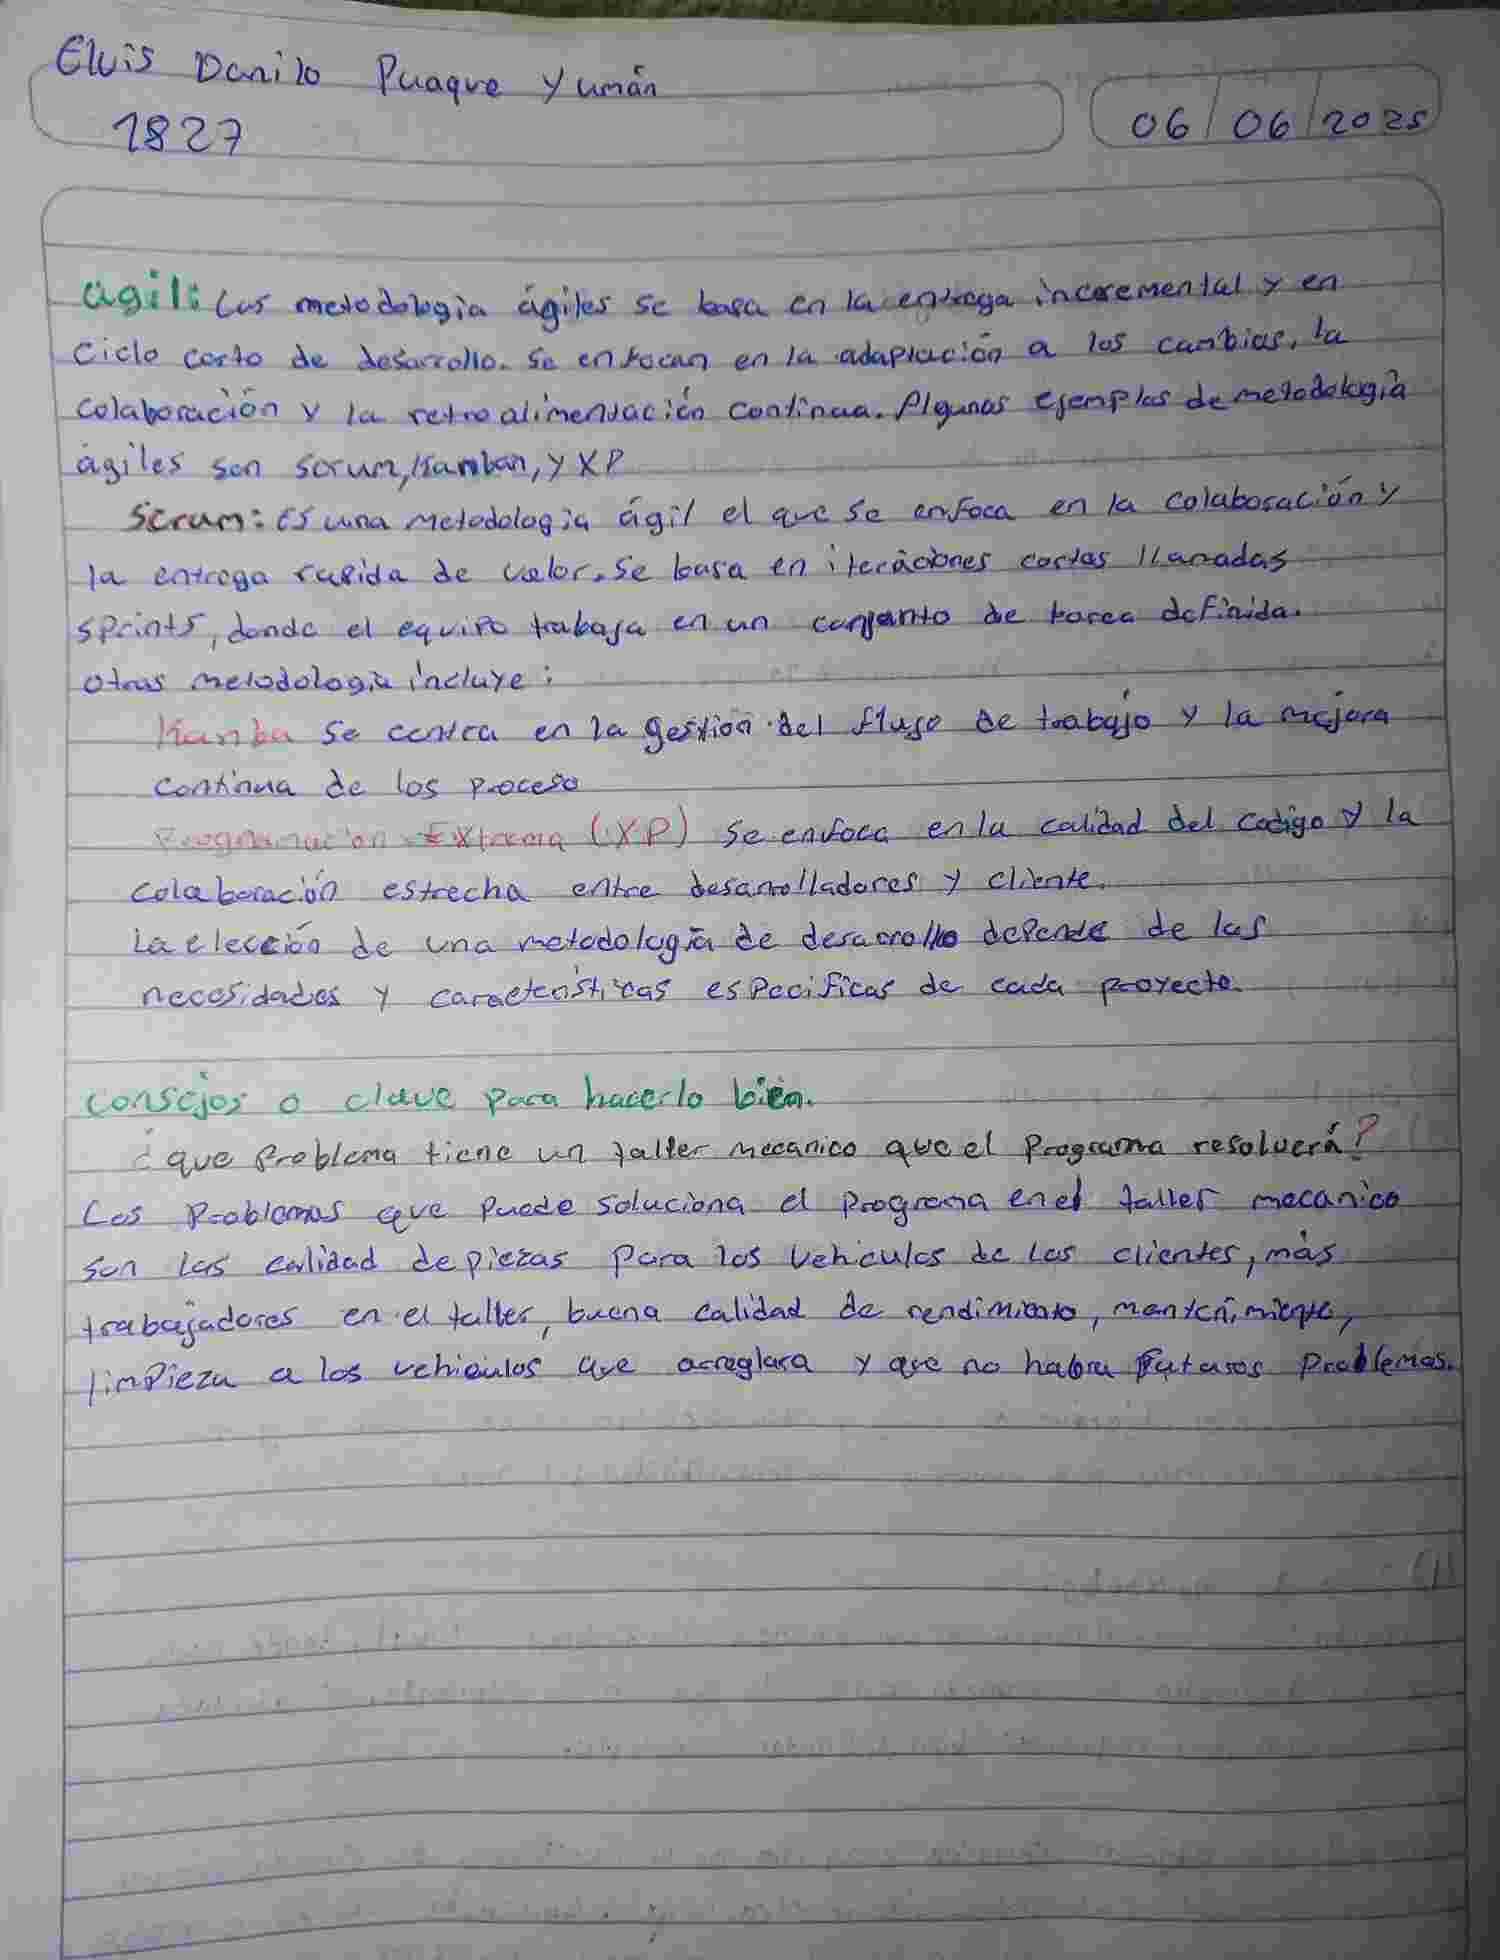 Elvis Danilo Puaque Yumán
1827
06/06/2025
agil: Las metodologia ágiles se basa en la entrega incremental y en
Ciclo corto de desarrollo. Se enfocan en la adaptación a los cambios, la
colaboración y la retroalimentación continua. Algunos ejemplos de metodologia
ágiles son scrum, Kamban, y XP
Scrum: Es una metodologia ágil el que se enfoca en la colaboración y
la entrega rapida de valor. Se basa en iteraciones cortas llamadas
sprints, donde el equipo trabaja en un conjunto de tarea definida.
otras metodologia incluye:
Kamba se centra en la gestión del flujo de trabajo y la mejora
continua de los proceso
Programación Extrema (XP) se enfoca en la calidad del codigo y la
colaboración estrecha entre desarrolladores y cliente.
La elección de una metodologia de desarrollo depende de las
necesidades y caracteristicas especificas de cada proyecto.
consejos o clave para hacerlo bien.
¿que problema tiene un taller mecanico que el programa resolverá?
Los problemas que puede soluciona el programa en el taller mecanico
son las calidad de piezas para los vehiculos de los clientes, más
trabajadores en el taller, buena calidad de rendimiento, mantenimiento,
limpieza a los vehiculos que arreglara y que no habra futuros problemas.